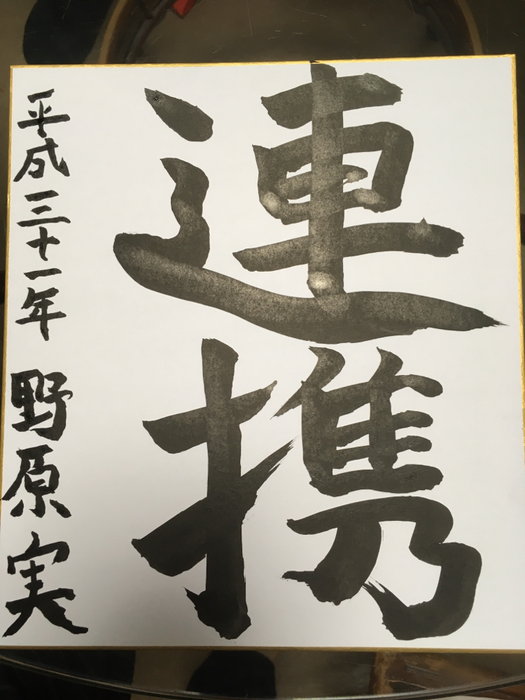 連携
平成三十一年 野原実